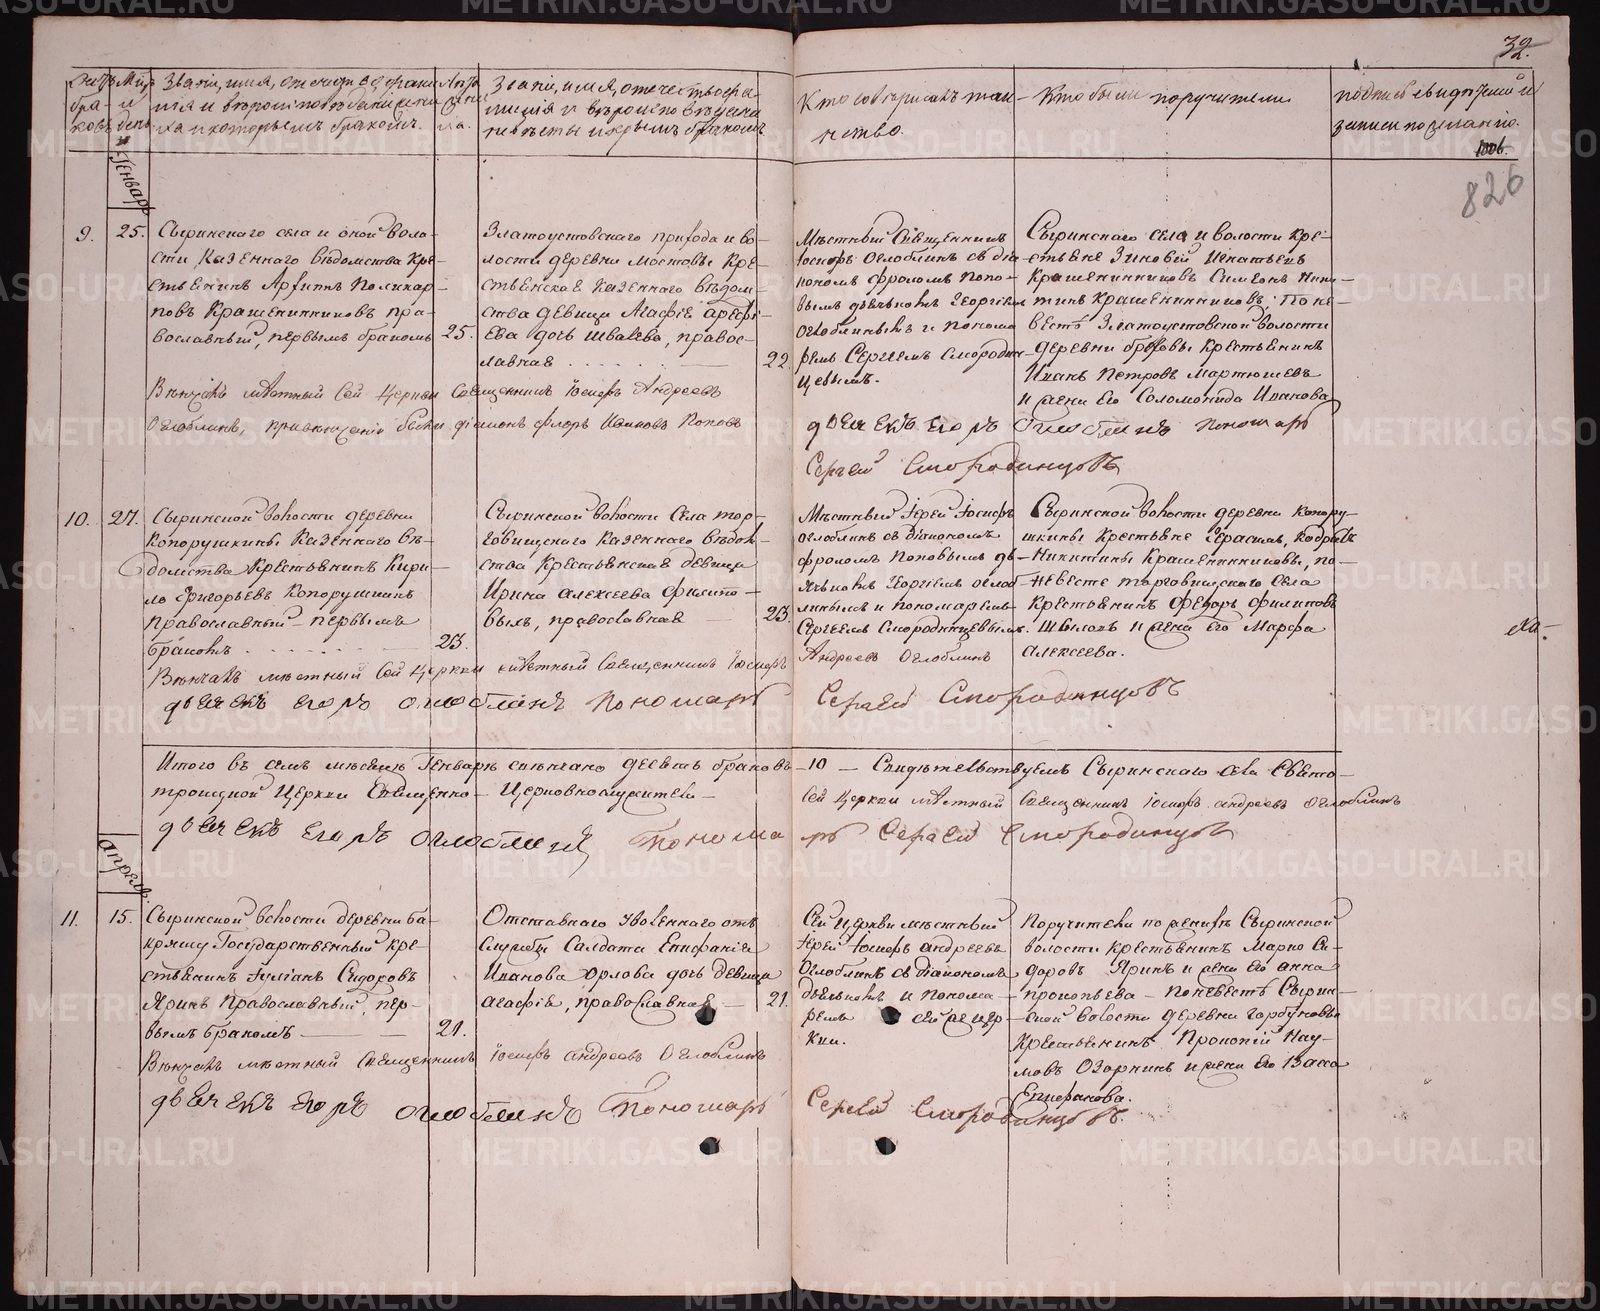 32.
Счетъ браковъ
Мѣсяцъ и день
Званіе, имя, отчество, фамилія и вѣроисповѣданіе жениха и которымъ бракомъ.
Лѣта жениха.
Званіе, имя, отчество, фамилія и вѣроисповѣданіе невѣсты и которымъ бракомъ
Кто совершалъ таинство.
Кто были поручители
подпись свидѣтелей и записи по желанію.
826
Генварь
9.
25.
Сыринскаго села и оной воло-
сти Казеннаго вѣдомства Кре-
стьянинъ Архипъ Поликар-
повъ Крашенинниковъ пра-
вославный, первымъ бракомъ
25.
Златоустовскаго прихода и во-
лости деревни Мостовы Кре-
стьянская Казеннаго вѣдом-
ства девица Агафія Арефі-
ева дочь Швалева, правос-
лавная
22.
Мѣстный Священникъ
Іосифъ Оглоблинъ съ діа-
кономъ Фроломъ Попо-
вымъ дьячкомъ Георгіем
Оглоблинымъ и понома
ремъ Сергіемъ Смородин-
цевымъ.
Сыринскаго села и волости Кре-
стьяне Зиновей Игнатьевъ
Крашенинниковъ Симеонъ Ники-
тинъ Крашенинниковъ; По не-
вестѣ Златоустовской волости
деревни Крестьянинъ
Иванъ Петровъ Мартюшевъ
и жена Его Соломонида Иванова
Вѣнчалъ мѣстный Сей Церкви Священникъ Іосифъ Андреевъ
Оглоблинъ, діаконъ Флоръ Ивановъ Поповъ
дьячекъ Егоръ Оглоблинъ Пономарь
Сергей Смородинцовъ
10.
27.
Сыринской волости деревни
Копорушкины Казеннаго вѣ-
домства Крестьянинъ Кири-
ло Григорьевъ Копорушкинъ
православный первымъ
бракомъ
23.
Сыринской волости Села тор-
говищскаго Казеннаго вѣдом-
ства Крестьянская девица
Ирина Алексеева Филипо-
выхъ, православная
23.
Мѣстный Іерей Іосифъ
Оглоблинъ съ діакономъ
Фроломъ Поповымъ дь-
ячькомъ Георгіемъ оглоб-
линымъ и пономаремъ
Сергіемъ Смородинцевымъ.
Сыринской волости деревни Копору-
шкины Крестьяне Герасимъ, Кодратъ
Никитины Крашенинниковы, по
невесте торговищскаго Села
Крестьянинъ Федоръ Филиповъ
и жена Его Марфа
Алексеева.
Вѣнчалъ мѣстный Сей Церкви мѣстный Священникъ Іосифъ
Андреевъ Оглоблинъ
дьячекъ Егоръ Оглоблинъ Пономарь Сергей Смородинцовъ
Итого въ семъ мѣсяцѣ Генварѣ свѣнчано десять браковъ — 10 — Свидѣтельствуемъ Сыринскаго села Свято-
троицкой Церкви Священно- Церковнослужители —
Сей Церкви мѣстный Священникъ Іосифъ Андреевъ Оглоблинъ
дьячекъ Егоръ Оглоблинъ Пономарь Сергей Смородинцовъ
апрель.
11.
15.
Сыринской волости деревни Ба-
кряшу Государственный кре-
стьянинъ Іуліанъ Сидоровъ
Яринъ Православный, пер-
вымъ бракомъ
21.
Отставнаго Уволеннаго отъ
службы Солдата Епифанія
Иванова Орлова дочь девица
Агафія, православная —
21.
Сей Церкви мѣстный
Іерей Іосифъ Андреевъ
Оглоблинъ съ діакономъ
дьячькомъ и понома-
ремъ сей же Цер-
кви.
Поручители по женихѣ Сыринской
волости Крестьянинъ Марко Си-
доровъ Яринъ и жена Его Анна
прокопьева — По невестѣ Сырин-
ской волости деревни Горбуновы
Крестьянинъ Прокопій Нау-
мовъ Озорнинъ и жена Его Васса
Епифанова.
Вѣнчалъ мѣстный Священникъ Іосифъ Андреевъ Оглоблинъ
дьячекъ Егоръ Оглоблинъ Пономарь Сергей Смородинцовъ.
METRIKI.GASO-URAL.RU